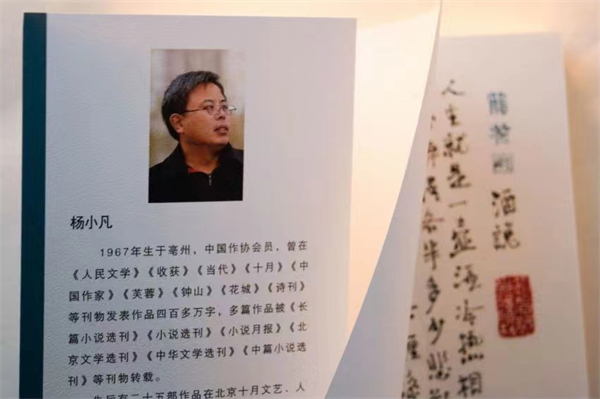 杨小凡
1967年生于亳州,中国作协会员,曾在
《人民文学》《收获》《当代》《十月》《中
国作家》《芙蓉》《钟山》《花城》《诗刊》
等刊物发表作品四百多万字,多篇作品被《长
篇小说选刊》《小说选刊》《小说月报》《北
京文学选刊》《中华文学选刊》《中篇小说选
刊》等刊物转载。
先后有二十五部作品在北京十月文艺、人
酒说
人生就是一壶酒冷热相